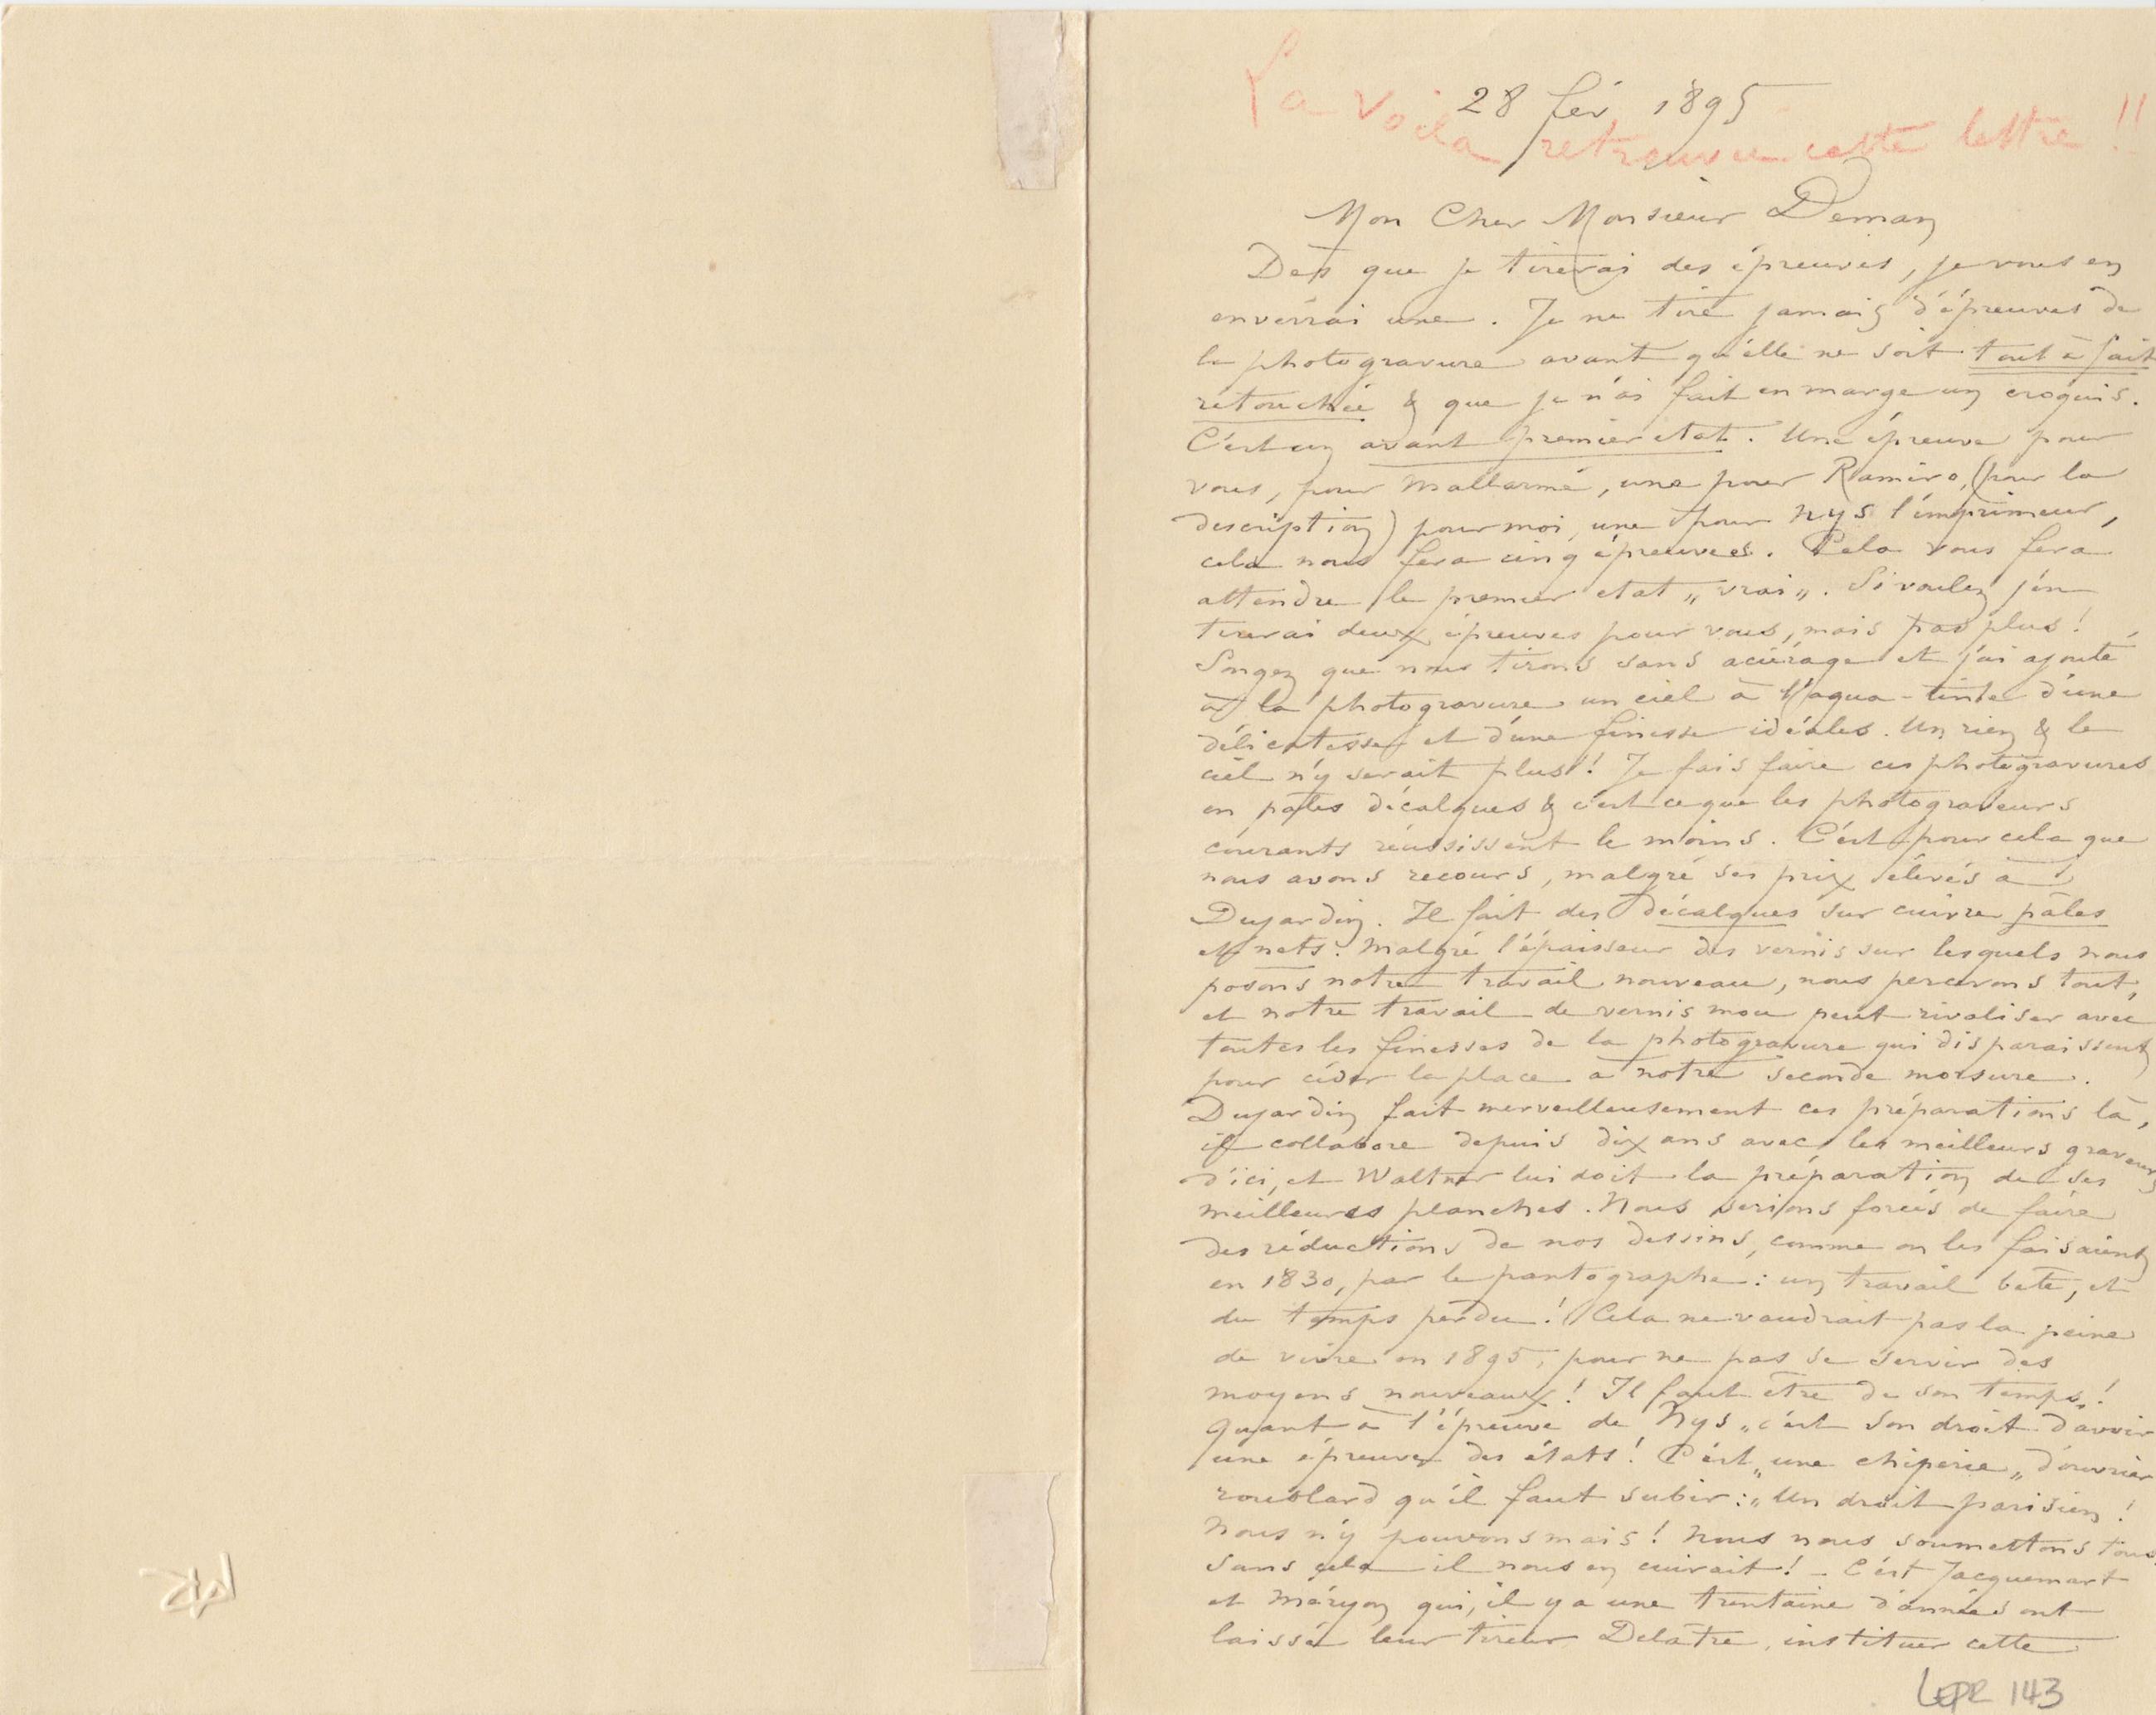 La voila retrouvée cette lettre !!
28 fév 1895
Mon Cher Monsieur Deman
Dès que je tirerai des épreuves, je vous en
enverrai une. Je ne tire jamais d'épreuves de
la photogravure avant qu'elle ne soit tout à fait
retouchée & que je n'ai fait en marge un croquis.
C'est un avant premier etat. Une épreuve pour
vous, pour Mallarmé, une pour Ramiro, (pour la
description) pour moi, une pour Nys l'imprimeur,
cela nous fera cinq épreuves. Cela vous fera
attendre le premier etat „vrai„. Si voulez j'en
tirerai deux épreuves pour vous, mais pas plus!
Songez que nous tirons sans aciérage et j'ai ajouté
à la photogravure un ciel à l'aqua-tinte d'une
délicatesse et d'une finesse idéales. Un rien & le
ciel n'y serait plus! Je fais faire ces photogravures
en pâles décalques & c'est ce que les photograveurs
courants réussissent le moins. C'est pour cela que
nous avons recours, malgré ses prix élevés à
Dujardin. Il fait des décalques sur cuivre pâles
et nets. Malgré l'épaisseur des vernis sur lesquels nous
posons notre travail nouveau, nous percevons tout,
et notre travail de vernis mou peut rivaliser avec
toutes les finesses de la photogravure qui disparaissent
pour céder la place à notre seconde morsure.
Dujardin fait merveilleusement ces préparations là,
il collabore depuis dix ans avec les meilleurs graveurs
d'ici, et Waltner lui doit la préparation de ses
meilleures planches. Nous serions forcés de faire
des réductions de nos dessins, comme on les faisaient
en 1830, par le pantographe: un travail bête, et
du temps perdu! Cela ne vaudrait pas la peine
de vivre en 1895, pour ne pas se servir des
moyens nouveaux! Il faut être de son temps!
Quant à l'épreuve de Nys „c'est son droit d'avoir
une épreuve des états! C'est „une chiperie„ d'ouvrier
roublard qu'il faut subir: „Un droit parisien!
Nous n'y pouvons mais! Nous nous soumettons tous,
sans cela il nous en cuirait! – C'est Jacquemart
et Méryon qui, il y a une trentaine d'années ont
laissé leur tireur Delâtre, instituer cette
LEPR 143